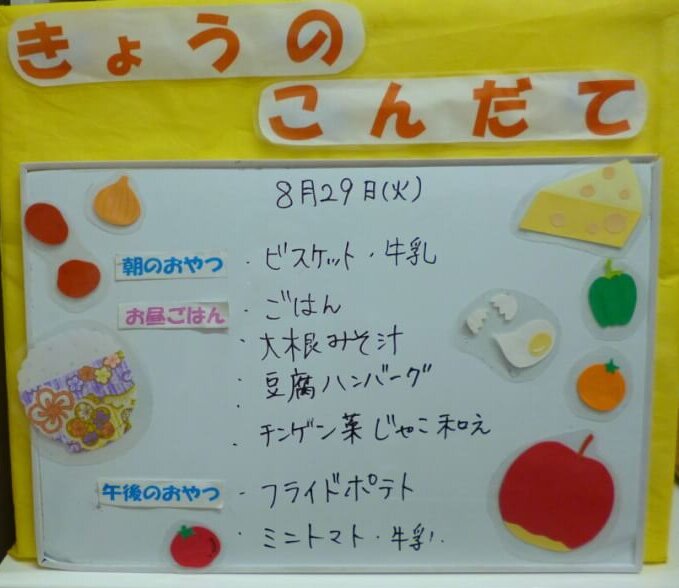 きょうの
こんだて
8月29日(火)
朝のおやつ ・ビスケット・牛乳
お昼ごはん ・ごはん
・大根みそ汁
・豆腐ハンバーグ
・
・チンゲン菜じゃこ和え
午後のおやつ ・フライドポテト
・ミニトマト・牛乳